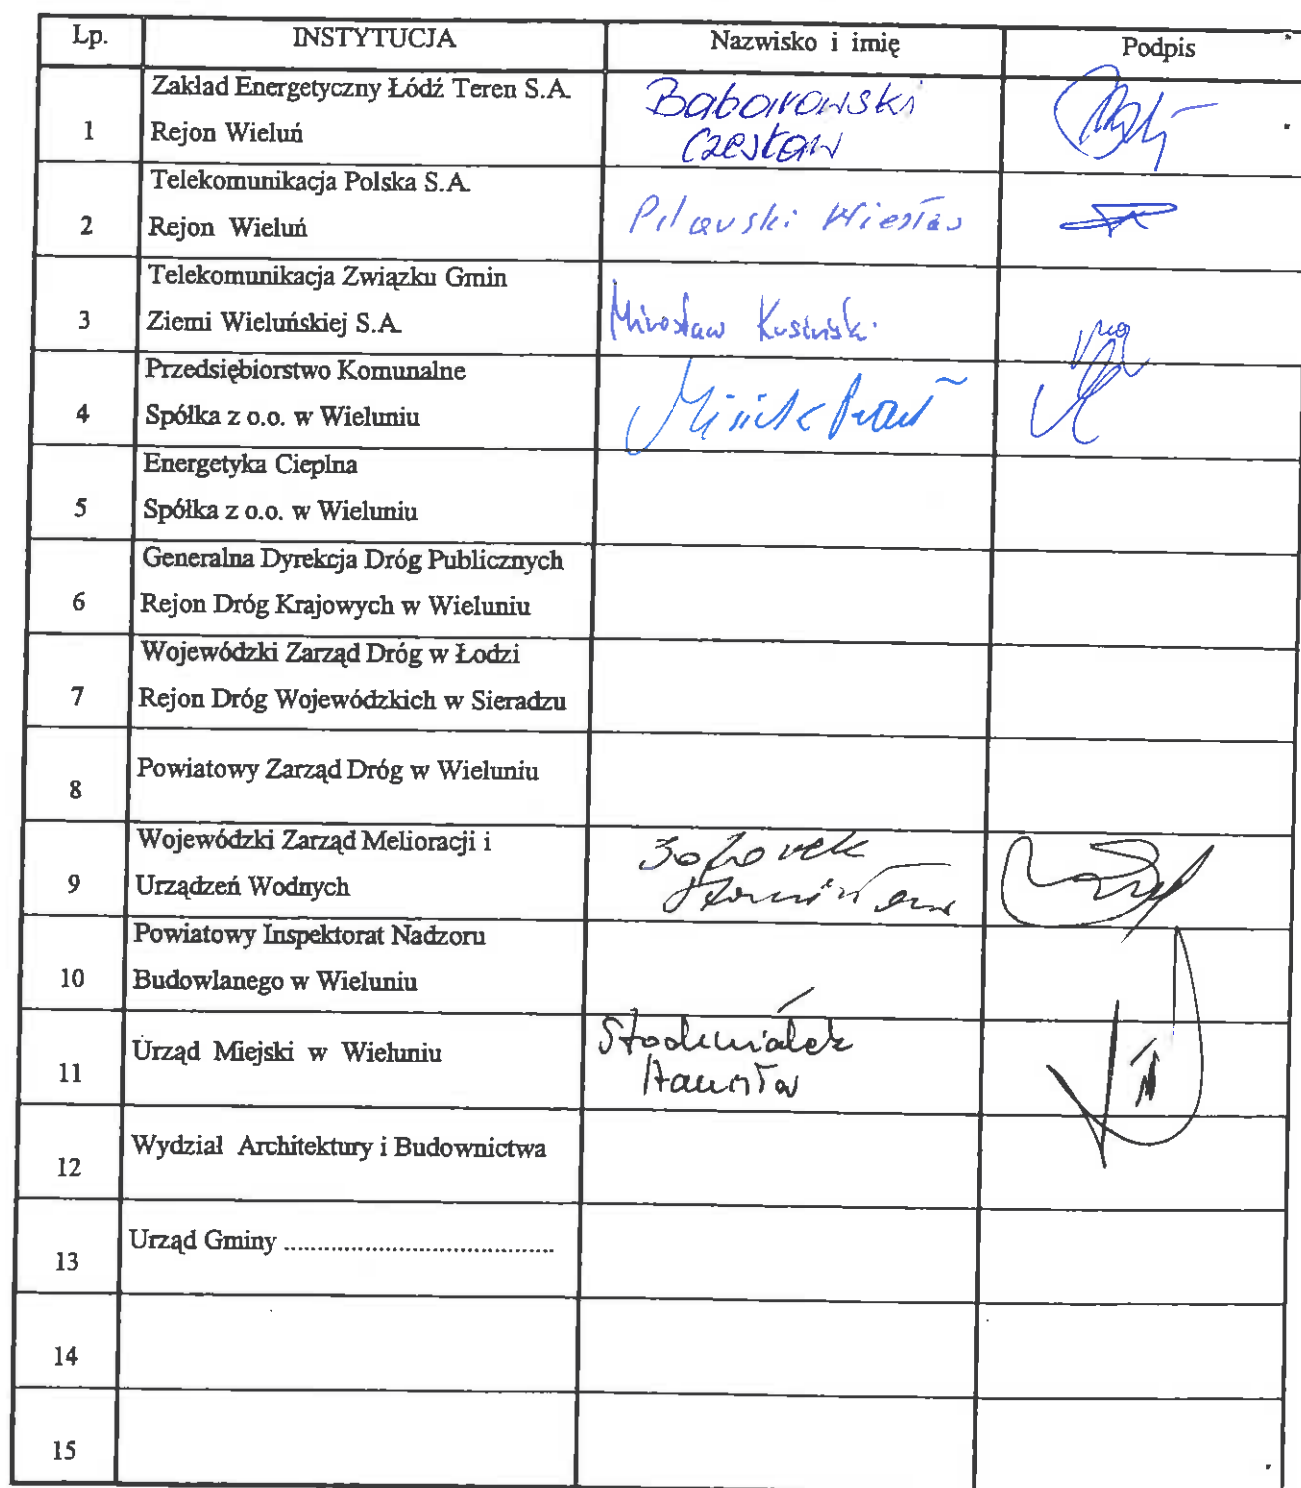 Lp. INSTYTUCJA Nazwisko i imię Podpis
Zakład Energetyczny Łódź Teren S.A. Baborowski
1 Rejon Wieluń Czesław
Telekomunikacja Polska S.A.
2 Rejon Wieluń Wiesław
Telekomunikacja Związku Gmin
3 Ziemi Wieluńskiej S.A. Mirosław Kusiński
Przedsiębiorstwo Komunalne
4 Spółka z o.o. w Wieluniu
Energetyka Cieplna
5 Spółka z o.o. w Wieluniu
Generalna Dyrekcja Dróg Publicznych
6 Rejon Dróg Krajowych w Wieluniu
Wojewódzki Zarząd Dróg w Łodzi
7 Rejon Dróg Wojewódzkich w Sieradzu
8 Powiatowy Zarząd Dróg w Wieluniu
Wojewódzki Zarząd Melioracji i
9 Urządzeń Wodnych
Powiatowy Inspektorat Nadzoru
10 Budowlanego w Wieluniu
11 Urząd Miejski w Wieluniu
12 Wydział Architektury i Budownictwa
13 Urząd Gminy ......................................
14
15